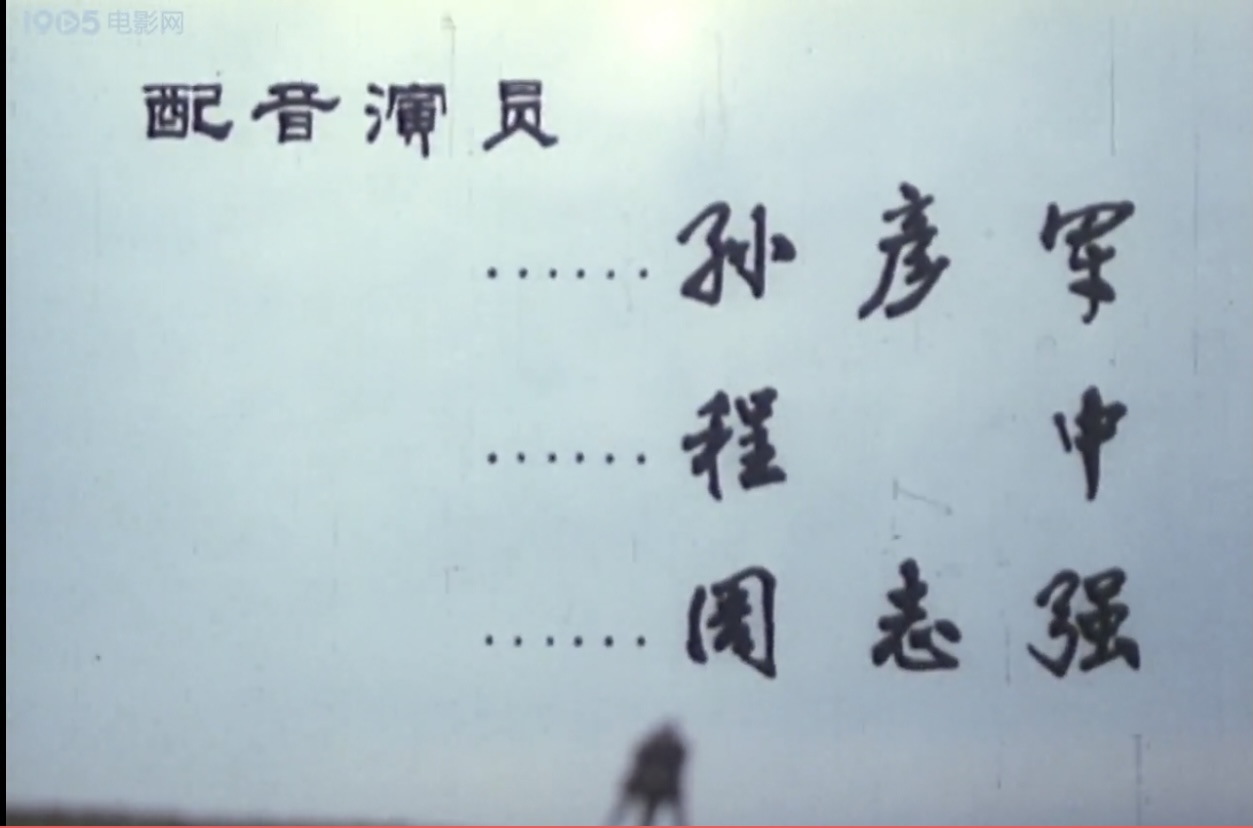 1905电影网
配音演员
......孙彦军
......程 中
......周志强